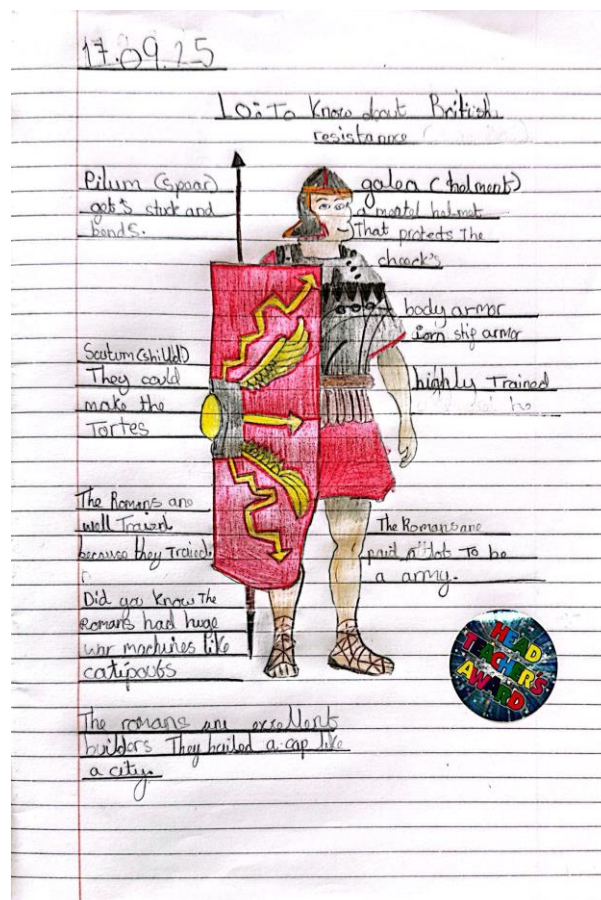 17.09.25
LO: To Know about British
resistance
Pilum (spear)
get's stuck and
bends.
galea (helment)
a meatel helmet
That protects The
cheeck's
body armor
iorn stip armor
Scutum (shilld)
They could
make the
Tortes
highly Trained
The Romans are
well Traied
because they Traied.
The Romans are
paid a lots To be
a army.
Did you know The
Romans had huge
war machines like
catipouts
HEAD
TEACHER'S
AWARD
The romans are excellent
builders They builed a cap like
a city.